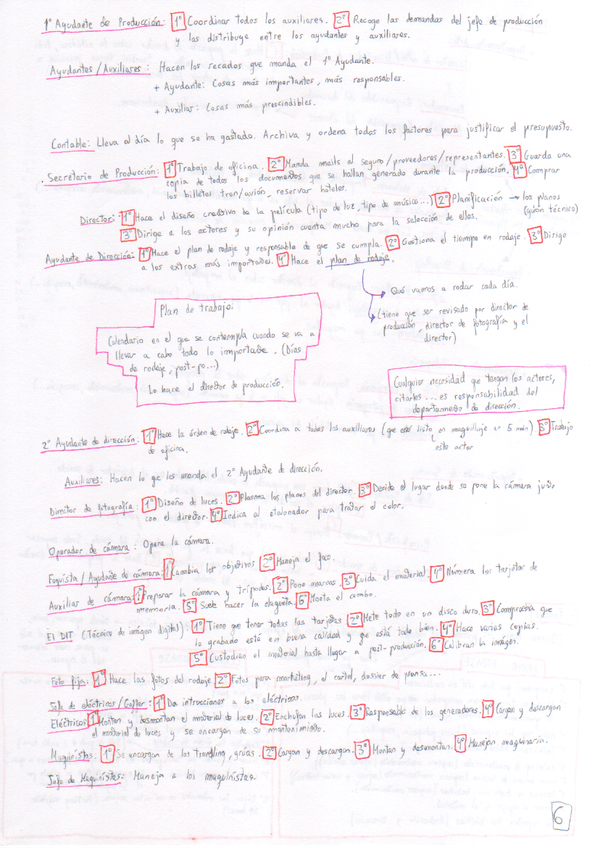 1º Ayudante de Producción: 1º Coordinar todos los auxiliares. 2º Recoge las demandas del jefe de producción
y las distribuye entre los ayudantes y auxiliares.
Ayudantes/Auxiliares: Hacen los recados que manda el 1º Ayudante.
+ Ayudante: Cosas más importantes, más responsables.
+ Auxiliar: Cosas más prescindibles.
Contable: Lleva al día lo que se ha gastado. Archiva y ordena todos los factores para justificar el presupuesto.
Secretario de Producción: 1º Trabajo de oficina. 2º Manda mails al seguro/proveedores/representantes. 3º Guarda una
copia de todos los documentos que se hallan generado durante la producción. 4º Comprar
los billetes tren/avión, reservar hoteles.
Director: 1º Hace el diseño creativo de la película (tipo de luz, tipo de música...) 2º Planificación → los planos
(guión técnico)
3º Dirige a los actores y su opinión cuenta mucho para la selección de ellos.
Ayudante de Dirección: 1º Hace el plan de rodaje y responsable de que se cumpla. 2º Gestiona el tiempo en rodaje. 3º Dirige
a los extras más importantes. 4º Hace el plan de rodaje.
Qué vamos a rodar cada día.
(tiene que ser revisado por director de
producción, director de fotografía y el
director)
Plan de trabajo:
Calendario en el que se contempla cuando se va a
llevar a cabo todo lo importante. (Días
de rodaje, post-po...)
Lo hace el director de producción.
Cualquier necesidad que tengan los actores,
citarles... es responsabilidad del
departamento de dirección.
2º Ayudante de dirección: 1º Hace la órden de rodaje. 2º Coordina a todos los auxiliares (que esté listo en maquillaje en 5 min) 3º Trabajo
de oficina.
este actor
Auxiliares: Hacen lo que les manda el 2º Ayudante de dirección.
Director de fotografía: 1º Diseño de luces. 2º Planea los planos del director 3º Decide el lugar donde se pone la cámara junto
con el director. 4º Indica al etalonador para tratar el color.
Operador de cámara: Opera la cámara.
Foquista/Ayudante de cámara: 1º Cambia los objetivos 2º Maneja el foco.
Auxiliar de cámara: 1º Preparar la cámara y trípodes. 2º Pone marcas. 3º Cuida el material. 4º Númera las tarjetas de
memoria. 5º Suele hacer la claqueta. 6º Monta el combo.
El DIT (Técnico de imágen digital): 1º Tiene que tener todas las tarjetas 2º Mete todo en un disco duro. 3º Comprueba que
lo grabado está en buena calidad y que está todo bien. 4º Hace varias copias.
5º Custodian el material hasta llegar a post-producción. 6º Calibran la imágen.
Foto fija: 1º Hace las fotos del rodaje 2º Fotos para marketing, el cartel, dossier de prensa...
Jefe de eléctricos/Gaffer: 1º Da intrucciones a los eléctricos.
Eléctricos: 1º Montan y desmontan el material de luces. 2º Enchufan las luces. 3º Responsable de los generadores. 4º Cargan y descargan
el material de luces y se encargan de su mantenimiento.
Maquinistas: 1º Se encargan de los Travelling, grúas. 2º Cargan y descargan. 3º Montan y desmontan. 4º Manejan maquinaria.
Jefe de Maquinistas: Maneja a los maquinistas.
6